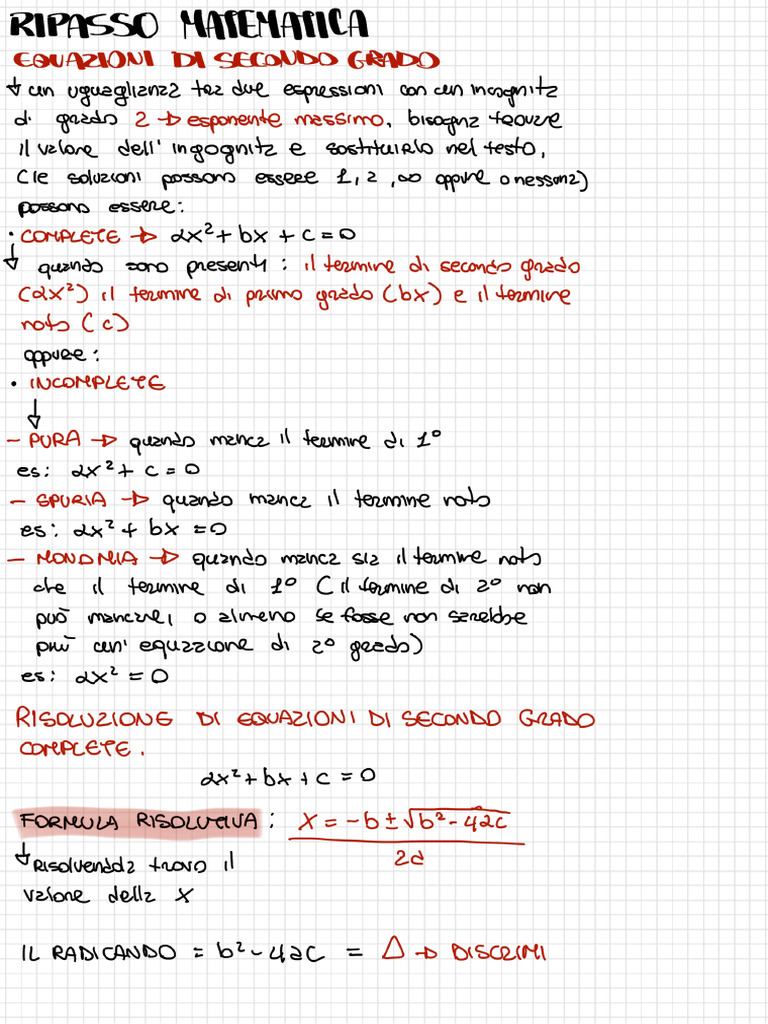 RIPASSO MATEMATICA
EQUAZIONI DI SECONDO GRADO
↓ un uguaglianza tra due espressioni con un incognita
di grado 2 → esponente massimo, bisogna trovare
il valore dell'ingognita e sostituirlo nel testo,
(le soluzioni possono essere 1, 2, ∞ oppure 0 nessuna)
possono essere:
• COMPLETE → ax² + bx + c = 0
↓ quando sono presenti: il termine di secondo grado
(ax²) il termine di primo grado (bx) e il termine
noto (c)
oppure:
• INCOMPLETE
↓
- PURA → quando manca il termine di 1°
es: ax² + c = 0
- SPURIA → quando manca il termine noto
es: ax² + bx = 0
- MONOMIA → quando manca sia il termine noto
che il termine di 1° (il termine di 2° non
può mancare, o almeno se fosse non sarebbe
più un'equazione di 2° grado)
es: ax² = 0
RISOLUZIONE DI EQUAZIONI DI SECONDO GRADO
COMPLETE.
ax² + bx + c = 0
FORMULA RISOLUTIVA: x = -b ± √b² - 4ac
2a
↓ RISOLVENDOLA trovo il
valore della X
IL RADICANDO = b² - 4ac = △ → DISCRIMI